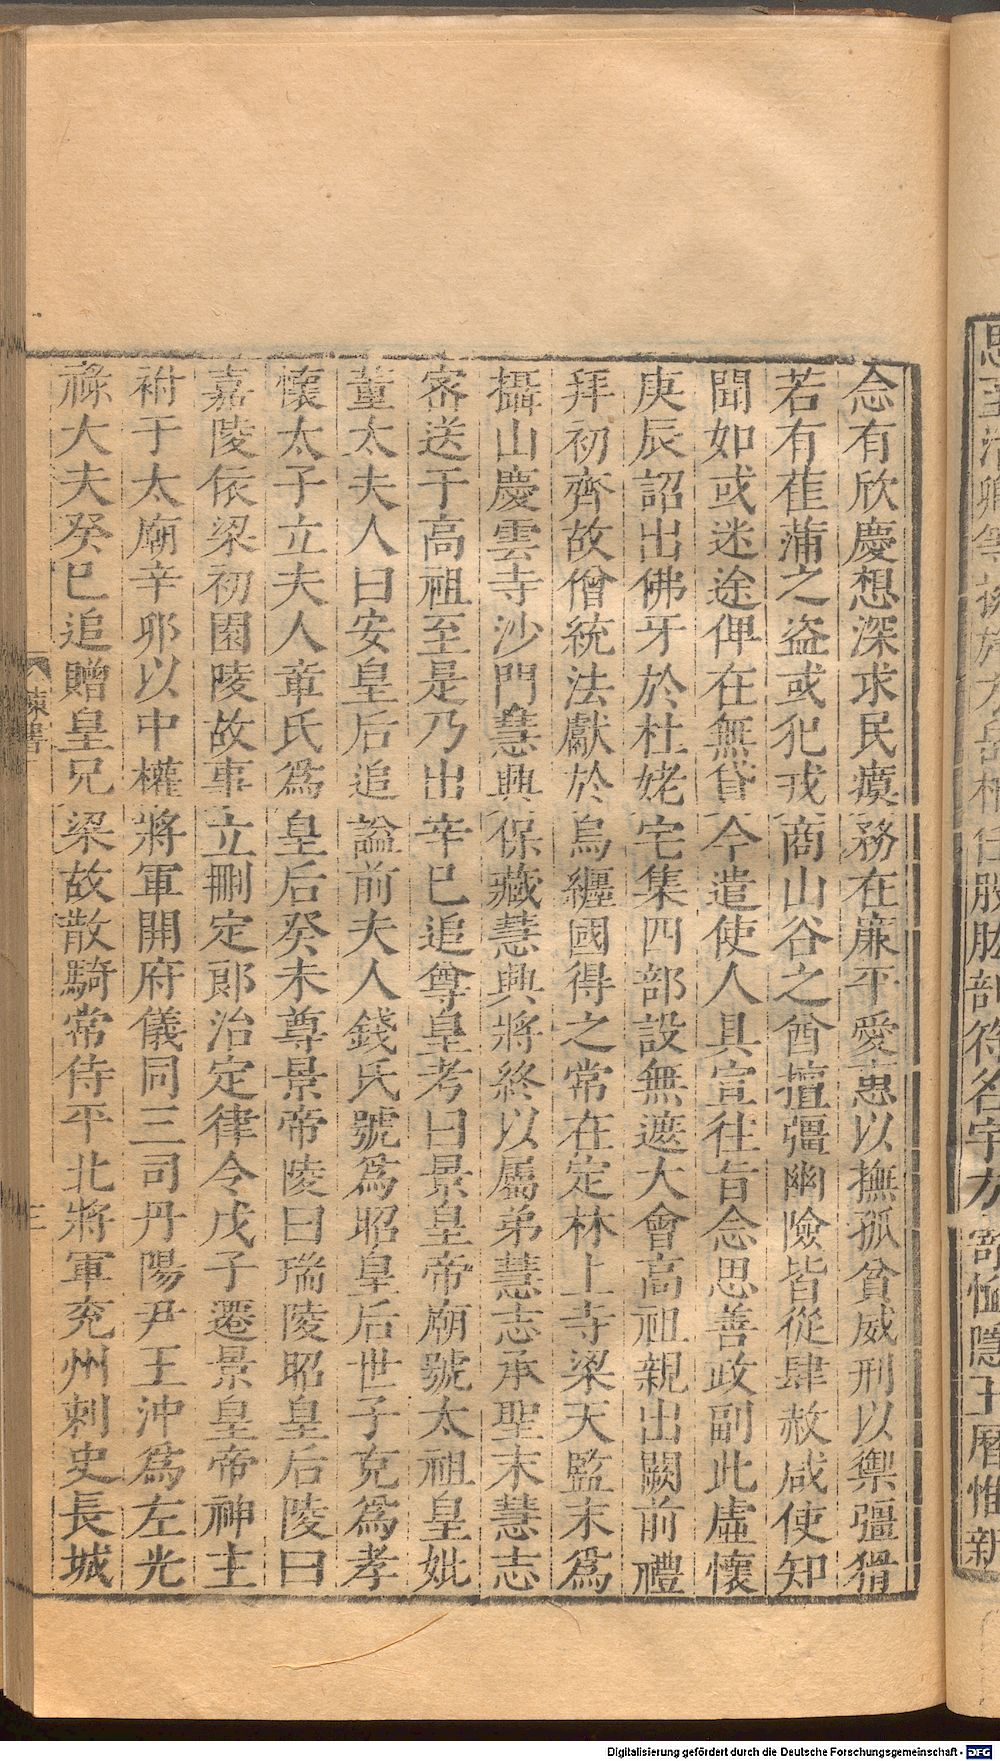 念有欣慶想深求民瘼務在廉平愛惠以撫孤貧威刑以禦彊猾
若有萑蒲之盜或犯戎商山谷之酋擅彊幽險皆從肆赦咸使知
聞如或迷途俾在無貸今遣使人具宣往旨念思善政副此虛懷
庚辰詔出佛牙於杜姥宅集四部設無遮大會高祖親出闕前禮
拜初齊故僧統法獻於烏纏國得之常在定林上寺梁天監末爲
攝山慶雲寺沙門慧興保藏慧興將終以屬弟慧志承聖末慧志
密送于高祖至是乃出辛巳追尊皇考曰景皇帝廟號太祖皇妣
董太夫人曰安皇后追謚前夫人錢氏號爲昭皇后世子克爲孝
懷太子立夫人章氏爲皇后癸未尊景帝陵曰瑞陵昭皇后陵曰
嘉陵依梁初園陵故事立刪定郎治定律令戊子遷景皇帝神主
祔于太廟辛卯以中權將軍開府儀同三司丹陽尹王沖爲左光
祿大夫癸巳追贈皇兄梁故散騎常侍平北將軍兗州刺史長城
陳書
三
Digitalisierung gefördert durch die Deutsche Forschungsgemeinschaft - DFG